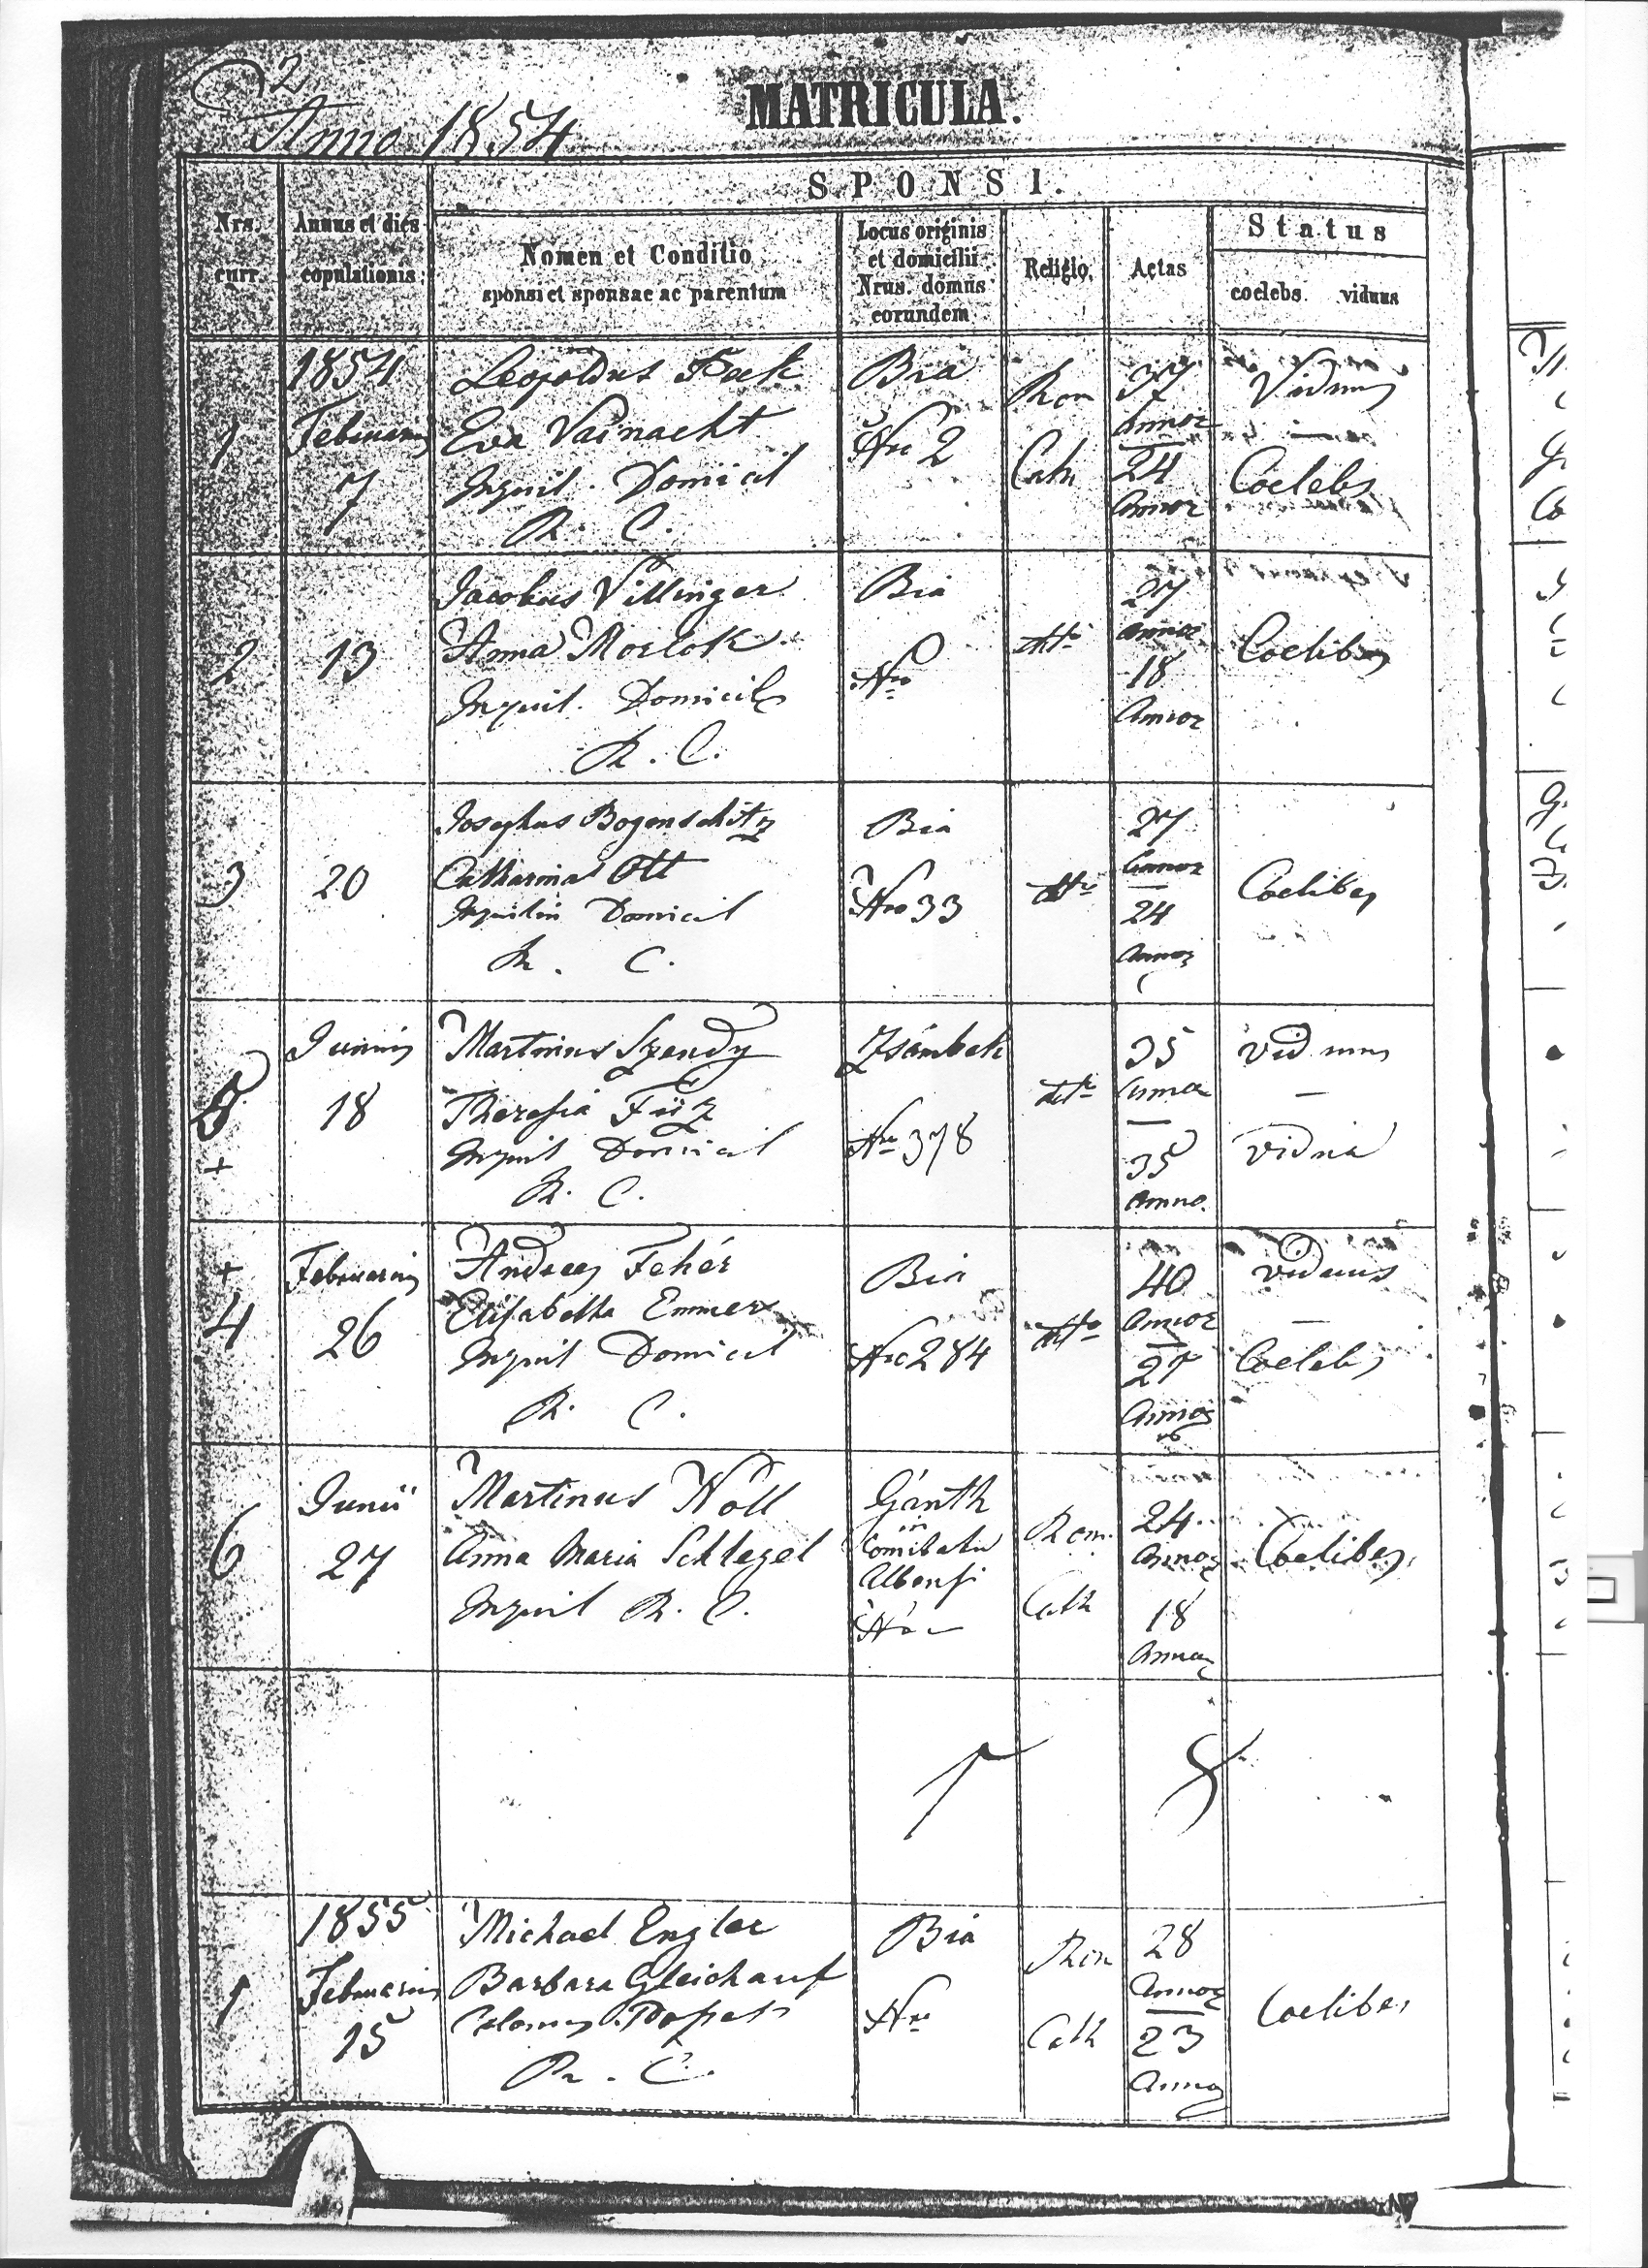 2
Anno 1854
MATRICULA.
SPONSI.
Nrs. curr.
Annus et dies copulationis
Nomen et Conditio
sponsi et sponsae ac parentum
Locus originis
et domicilii
Nrus. domus
eorundem
Religio
Aetas
Status
coelebs viduus
1
1854
Februarius
7
Leopoldus Feck
Eva Vainacht
Inquil. Domicil
R. C.
Bia
Nro 2
Rom
Cath
37
Annor
24
Annor
Viduus
—
Coelebs
2
13
Jacobus Villinger
Anna Morlok
Inquil. Domicil
R. C.
Bia
Nro
dtto
27
Annor
18
Annor
Coelibes
3
20
Josephus Bogenschitz
Catharina Ott
Inquilin Domicil
R. C.
Bia
Nro 33
dtto
27
Annor
24
Annor
Coelibes
5
+
Junius
18
Martinus Szendy
Theresia Füz
Inquil Domicil
R. C.
Zsámbek
Nro 378
dtto
35
Anno
35
Anno.
viduus
—
vidua
+
4
Februarius
26
Andreas Fehér
Elisabetha Emmer
Inquil Domicil
R. C.
Bia
Nro 284
dtto
40
Annor
27
Annor
viduus
—
Coelebs
6
Junii
27
Martinus Noll
Anna Maria Schlegel
Inquil R. C.
Gánth
in
Comitatu
Albensi
Nro —
Rom.
Cath
24
Annor
18
Annor
Coelibes
1
1855
Februarius
15
Michael Engler
Barbara Gleichauf
R. C.
Bia
Nro
Rom
Cath
28
Annor
23
Annor
Coelibes